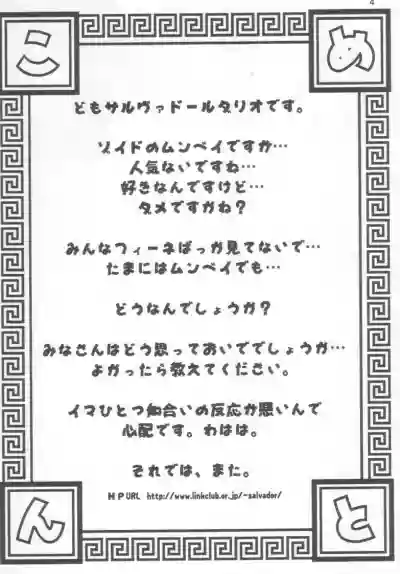 4
こ め
どもサルヴァドールダリオです。
ゾイドのムンベイですが…
人気ないですね…
好きなんですけど…
ダメですかね？
みんなフィーネばっか見てないで…
たまにはムンベイでも…
どうなんでしょうか？
みなさんはどう思っておいででしょうか…
よかったら教えてください。
イマひとつ知合いの反応が悪いんで
心配です。わはは。
それでは、また。
HP URL http://www.linkclub.or.jp/~salvador/
ん と